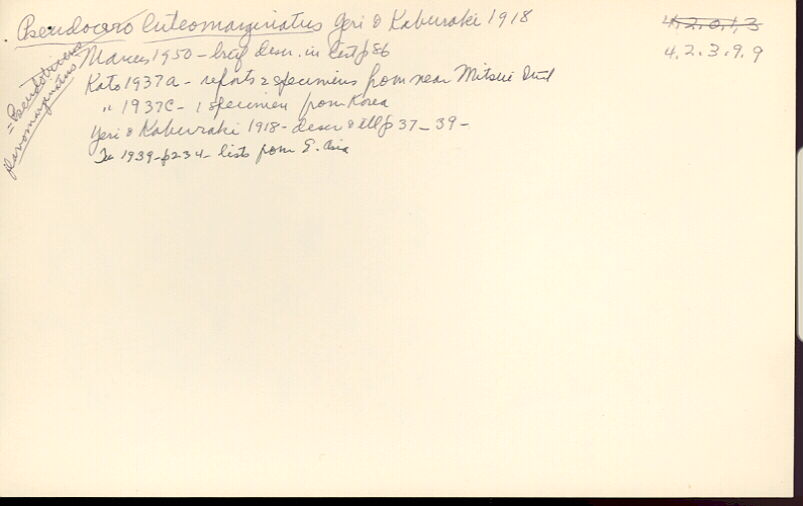 Pseudocero luteomarginatus Yeri & Kaburaki 1918
4.2.0.1.3
4.2.3.9.9
= Pseudoceros flavomarginatus
Marcus 1950 - brief descr. in list p 86
Kato 1937a - reports 2 specimens from near Mitsui Inst
" 1937c - 1 specimen from Korea
Yeri & Kaburaki 1918 - descr & ill p 37 - 39 -
1939 - p 234 - lists from E. Asia